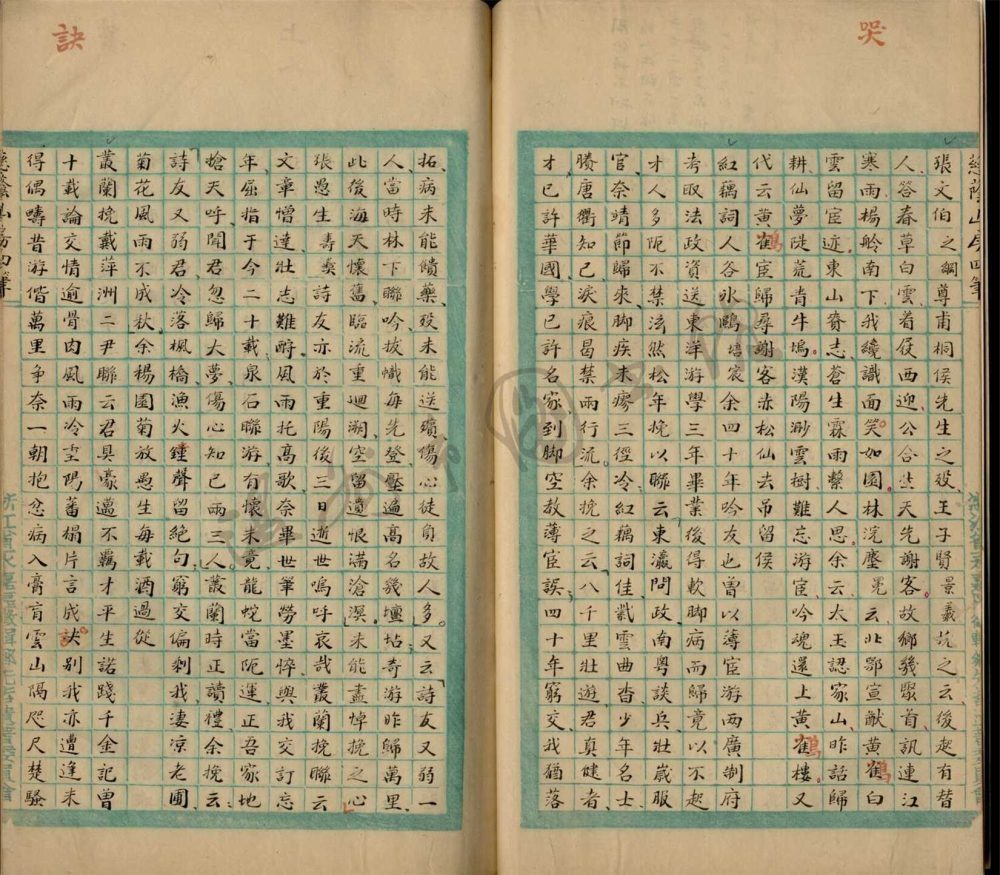 哭
張文伯之綱尊甫桐侯先生之歿王子賢景羲挽之云後起有替
人答春草白雲着屐西迎公合生天先謝客故鄉幾聚首訊連江
寒雨楊舲南下我纔識面笑如園林浣塵冕云北鄂宣猷黃雀白
雲留宦迹東山賚志蒼生霖雨繫人思余云太玉認家山昨話歸
耕仙夢陡荒青牛塢漢陽渺雲樹難忘游宦吟魂還上黃雀樓又
鶴
代云黃雀宦歸尋謝客赤松仙去吊留侯
鶴
紅藕詞人各氷鷗培宸余四十年吟友也曾以薄宦游兩廣制府
考取法政資送東洋游學三年畢業後得軟脚病而歸竟以不起
才人多阨不禁泫然松年挽以聯云東瀛問政南粵談兵壯歲服
官奈靖節歸來脚疾未瘳三徑冷紅藕詞佳紫雲曲杳少年名士
賸唐衢知己淚痕曷禁雨行流余挽之云八千里壯遊君真健者
才已許華國學已許名家到脚空教薄宦誤四十年窮交我猶落
訣
拓病未能饋藥歿未能送殯傷心徒負故人多又云詩友又弱一
人當時林下聯吟拔幟每先登壓遍高名幾壇坫奇游昨歸萬里
此後海天懷舊臨流重迴溯空留遺恨滿滄溟未能盡悼挽之心
張愚生壽奠詩友亦於重陽後三日逝世嗚呼哀哉叢蘭挽聯云
文章憎達壯志難酧風雨托高歌奈畢世筆勞墨悴與我交訂忘
年屈指于今二十載泉石聯游有懷未竟龍蛇當阨運正吾家地
搶天呼聞君忽歸大夢傷心知己兩三人叢蘭時正讀禮余挽云
詩友又弱君冷落楓橋漁火鍾聲留絕句窮交偏剩我淒涼老圃
菊花風雨不成秋余楊園菊放愚生每載酒過從
叢蘭挽戴萍洲二尹聯云君具豪邁不羈才平生諾踐千金記曾
十載論交情逾骨肉風雨冷重陽蕃榻片言成訣別我亦遭逢未
得偶嗟昔游偕萬里爭奈一朝抱忿病入膏肓雲山隔咫尺楚騷